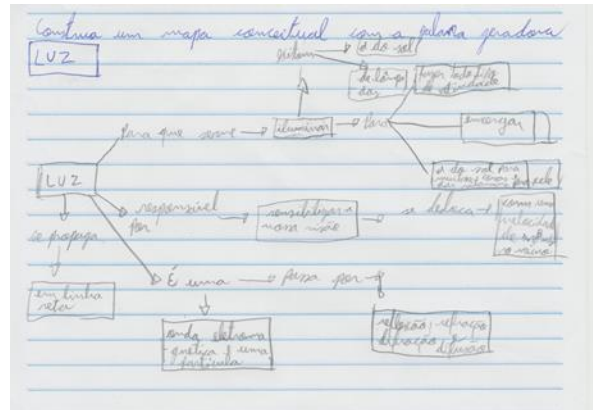 Construa um mapa conceitual com a palavra geradora
LUZ
existem
a do sol
de lâmpa
das
fazer todo tipo
de atividade
Para que serve
iluminar
Para
enxergar
LUZ
a do sol para
responsável
por
sensibilizar a
nossa visão
se desloca
com uma
velocidade
de
se propaga
em linha
reta
É uma
Passa por
onda eletroma
gnética e uma
partícula
reflexão, refração
difração, e
difusão